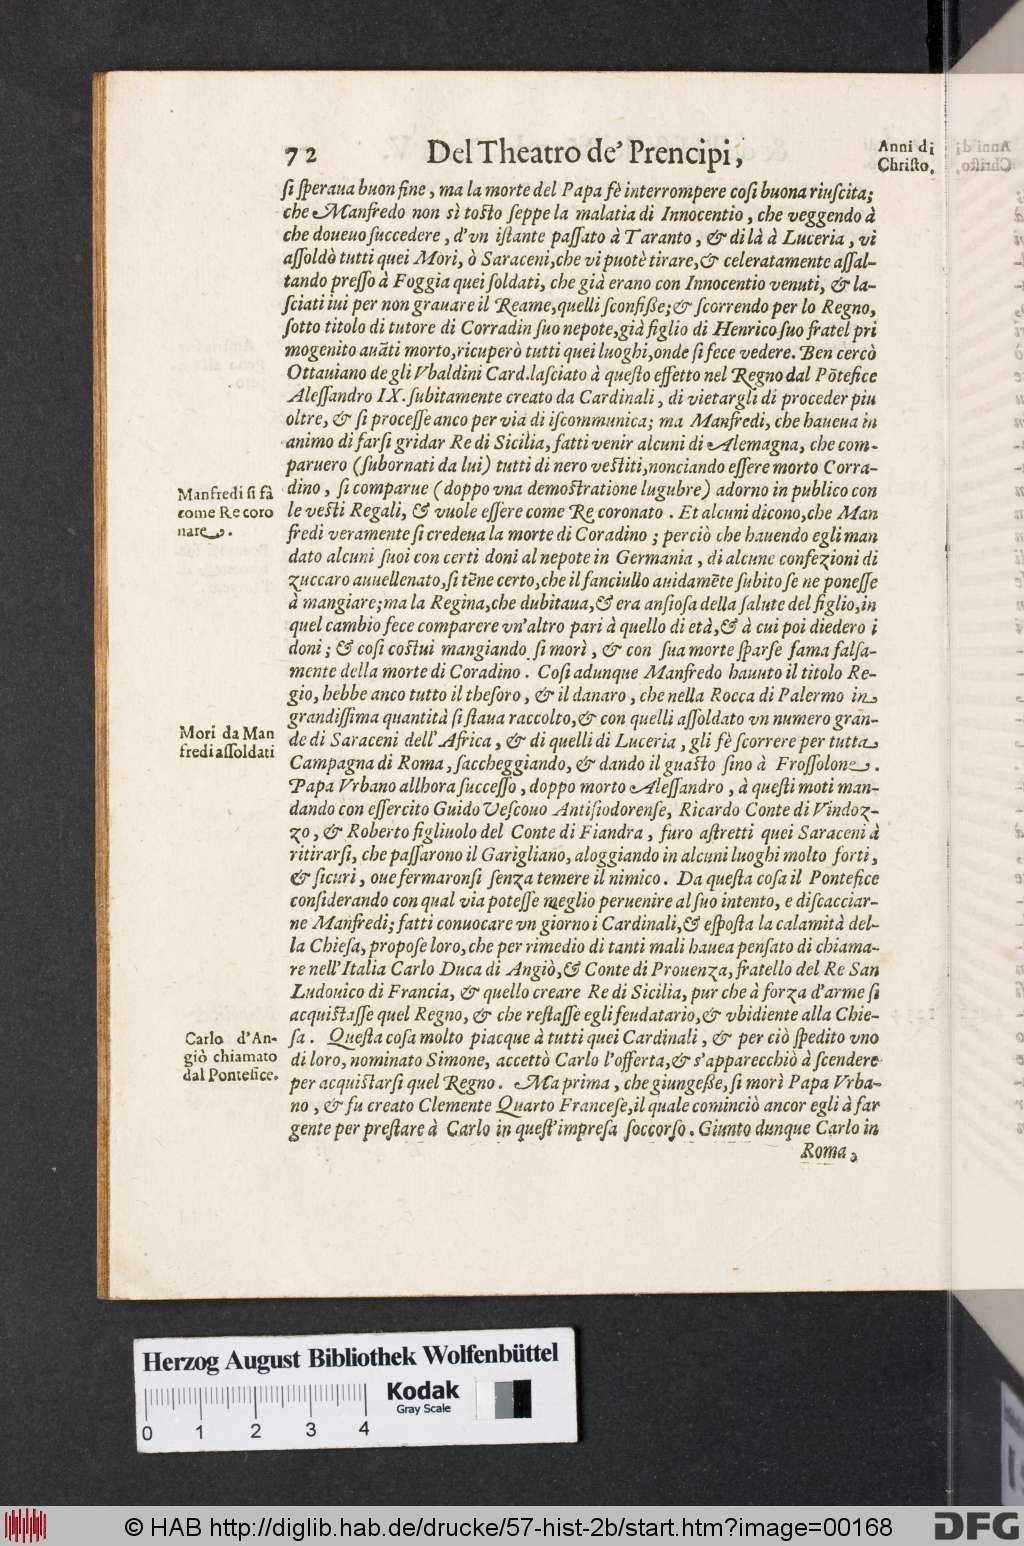 72 Del Theatro de' Prencipi,
Anni di
Christo.
ſi ſperaua buon fine, ma la morte del Papa fè interrompere coſi buona riuſcita;
che Manfredo non sì toſto ſeppe la malatia di Innocentio, che veggendo à
che doueuo ſuccedere, d'vn iſtante paſſato à Taranto, & di là à Luceria, vi
aſſoldò tutti quei Mori, ò Saraceni, che vi puotè tirare, & celeratamente aſſal-
tando preſſo à Foggia quei ſoldati, che già erano con Innocentio venuti, & la-
ſciati iui per non grauare il Reame, quelli ſconfiße; & ſcorrendo per lo Regno,
ſotto titolo di tutore di Corradin ſuo nepote, già figlio di Henrico ſuo fratel pri
mogenito auãti morto, ricuperò tutti quei luoghi, onde ſi fece vedere. Ben cercò
Ottauiano de gli Vbaldini Card. laſciato à queſto effetto nel Regno dal Põtefice
Aleſſandro IX. ſubitamente creato da Cardinali, di vietargli di proceder piu
oltre, & ſi proceſſe anco per via di iſcommunica; ma Manfredi, che haueua in
animo di farſi gridar Re di Sicilia, fatti venir alcuni di Alemagna, che com-
paruero (ſubornati da lui) tutti di nero veſtiti, nonciando eſſere morto Corra-
dino, ſi comparue (doppo vna demoſtratione lugubre) adorno in publico con
le veſti Regali, & vuole eſſere come Re coronato. Et alcuni dicono, che Man
fredi veramente ſi credeua la morte di Coradino; perciò che hauendo egli man
dato alcuni ſuoi con certi doni al nepote in Germania, di alcune confezioni di
zuccaro auuellenato, ſi tẽne certo, che il fanciullo auidamẽte ſubito ſe ne poneſſe
à mangiare; ma la Regina, che dubitaua, & era anſioſa della ſalute del figlio, in
quel cambio fece comparere vn'altro pari à quello di età, & à cui poi diedero i
doni; & coſi coſtui mangiando ſi morì, & con ſua morte ſparſe fama falſa-
mente della morte di Coradino. Coſi adunque Manfredo hauuto il titolo Re-
gio, hebbe anco tutto il theſoro, & il danaro, che nella Rocca di Palermo in
grandiſſima quantità ſi ſtaua raccolto, & con quelli aſſoldato vn numero gran-
de di Saraceni dell'Africa, & di quelli di Luceria, gli fè ſcorrere per tutta
Campagna di Roma, ſaccheggiando, & dando il guaſto ſino à Froſſolone.
Papa Vrbano allhora ſucceſſo, doppo morto Aleſſandro, à queſti moti man-
dando con eſſercito Guido Veſcouo Antiſiodorenſe, Ricardo Conte di Vindoz-
zo, & Roberto figliuolo del Conte di Fiandra, furo aſtretti quei Saraceni à
ritirarſi, che paſſarono il Garigliano, aloggiando in alcuni luoghi molto forti,
& ſicuri, oue fermaronſi ſenza temere il nimico. Da queſta coſa il Pontefice
conſiderando con qual via poteſſe meglio peruenire al ſuo intento, e diſcacciar-
ne Manfredi; fatti conuocare vn giorno i Cardinali, & eſpoſta la calamità del-
la Chieſa, propoſe loro, che per rimedio di tanti mali hauea penſato di chiama-
re nell'Italia Carlo Duca di Angiò, & Conte di Prouenza, fratello del Re San
Ludouico di Francia, & quello creare Re di Sicilia, pur che à forza d'arme ſi
acquiſtaſſe quel Regno, & che reſtaſſe egli feudatario, & vbidiente alla Chie-
ſa. Queſta coſa molto piacque à tutti quei Cardinali, & per ciò ſpedito vno
di loro, nominato Simone, accettò Carlo l'offerta, & s'apparecchiò à ſcendere
per acquiſtarſi quel Regno. Ma prima, che giungeße, ſi morì Papa Vrba-
no, & fu creato Clemente Quarto Franceſe, il quale cominciò ancor egli à far
gente per preſtare à Carlo in queſt'impreſa ſoccorſo. Giunto dunque Carlo in
Roma,
Manfredi ſi fà
come Re coro
nare.
Mori da Man
fredi aſſoldati
Carlo d'An-
giò chiamato
dal Pontefice.
Herzog August Bibliothek Wolfenbüttel
Kodak
Gray Scale
0 1 2 3 4
© HAB http://diglib.hab.de/drucke/57-hist-2b/start.htm?image=00168
DFG